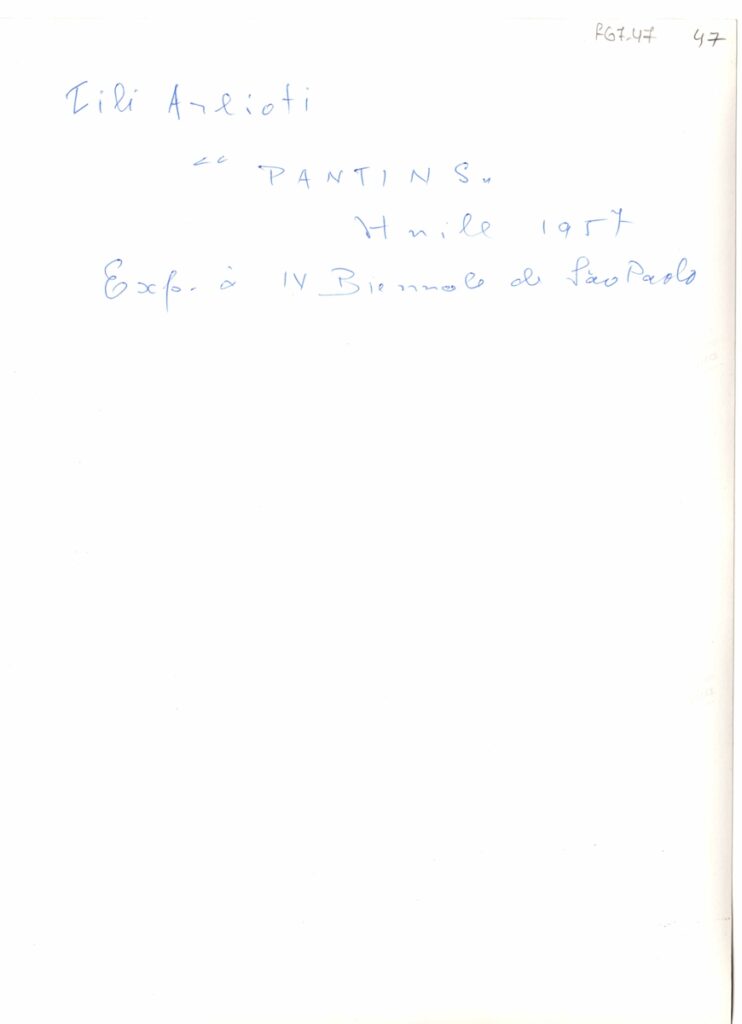 F67.47 47
Lili Arlioti
" PANTINS "
Huile 1957
Exp. à IV Biennale de São Paolo